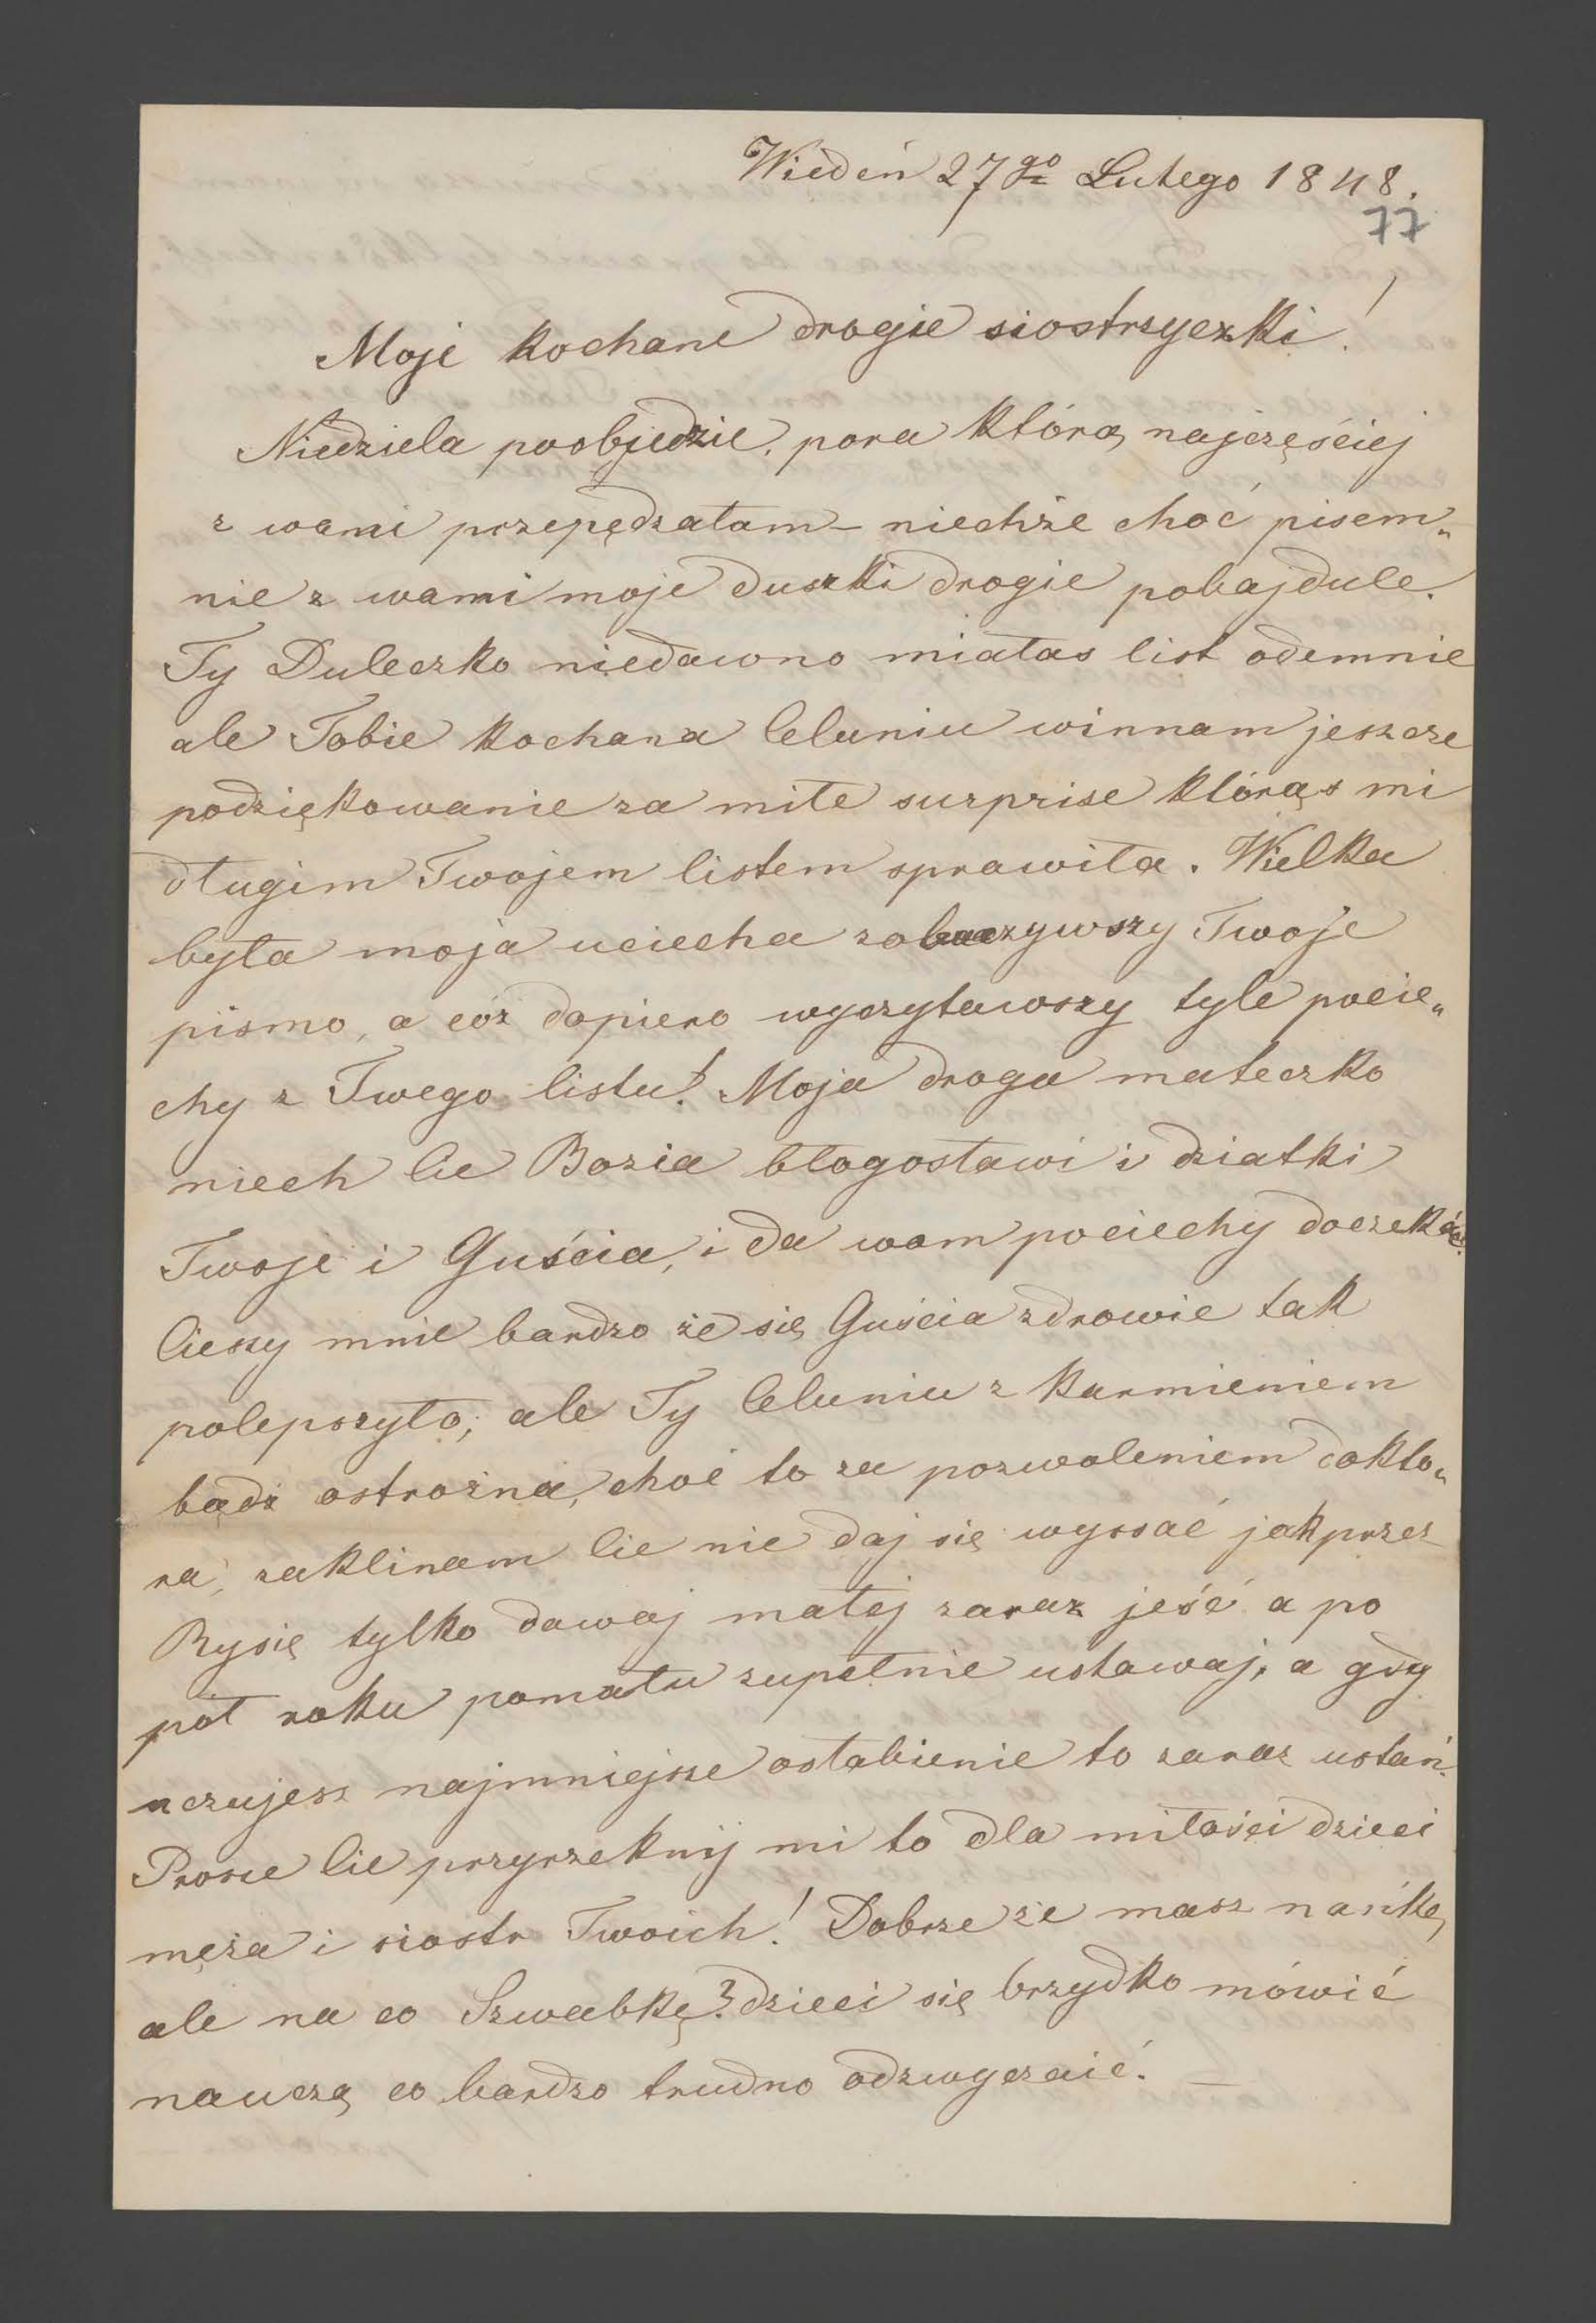 Wiedeń 27go Lutego 1848.
77
Moje kochane drogie siostrzyczki!
Niedziela poobjedzie, pora którą najczęściej
z wami przepędzałam – niechże choć pisem„
nie z wami moje duszki drogie pobajdulę.
Ty Duleczko niedawno miałaś list odemnie
ale Tobie kochana Celuniu winnam jeszcze
podziękowanie za miłe surprise którąś mi
długim Twojem listem sprawiła. Wielka
była moja uciecha zobaczywszy Twoje
pismo, a cóż dopiero wyczytawszy tyle pocie„
chy z Twego listu! Moja droga mateczko
niech Cie Bozia błogosławi i dziatki
Twoje i Guścia, i da wam pociechy doczekać.
Cieszy mnie bardzo że się Guścia zdrowie tak
polepszyło; ale Ty Celuniu z karmieniem
bądź ostrożna, choć to za pozwoleniem dokto„
ra, zaklinam Cie nie daj się wyssać jak przez
Rysię tylko dawaj małej zaraz jeść a po
pół roku pomału zupełnie ustawaj, a gdy
uczujesz najmniejsze osłabienie to zaraz ustań.
Prosze Cie przyrzeknij mi to dla miłości dzieci
męża i siostr Twoich! Dobrze że masz niańkę,
ale na co Szwabkę? dzieci się brzydko mówić
nauczą co bardzo trudno odzwyczaić. —